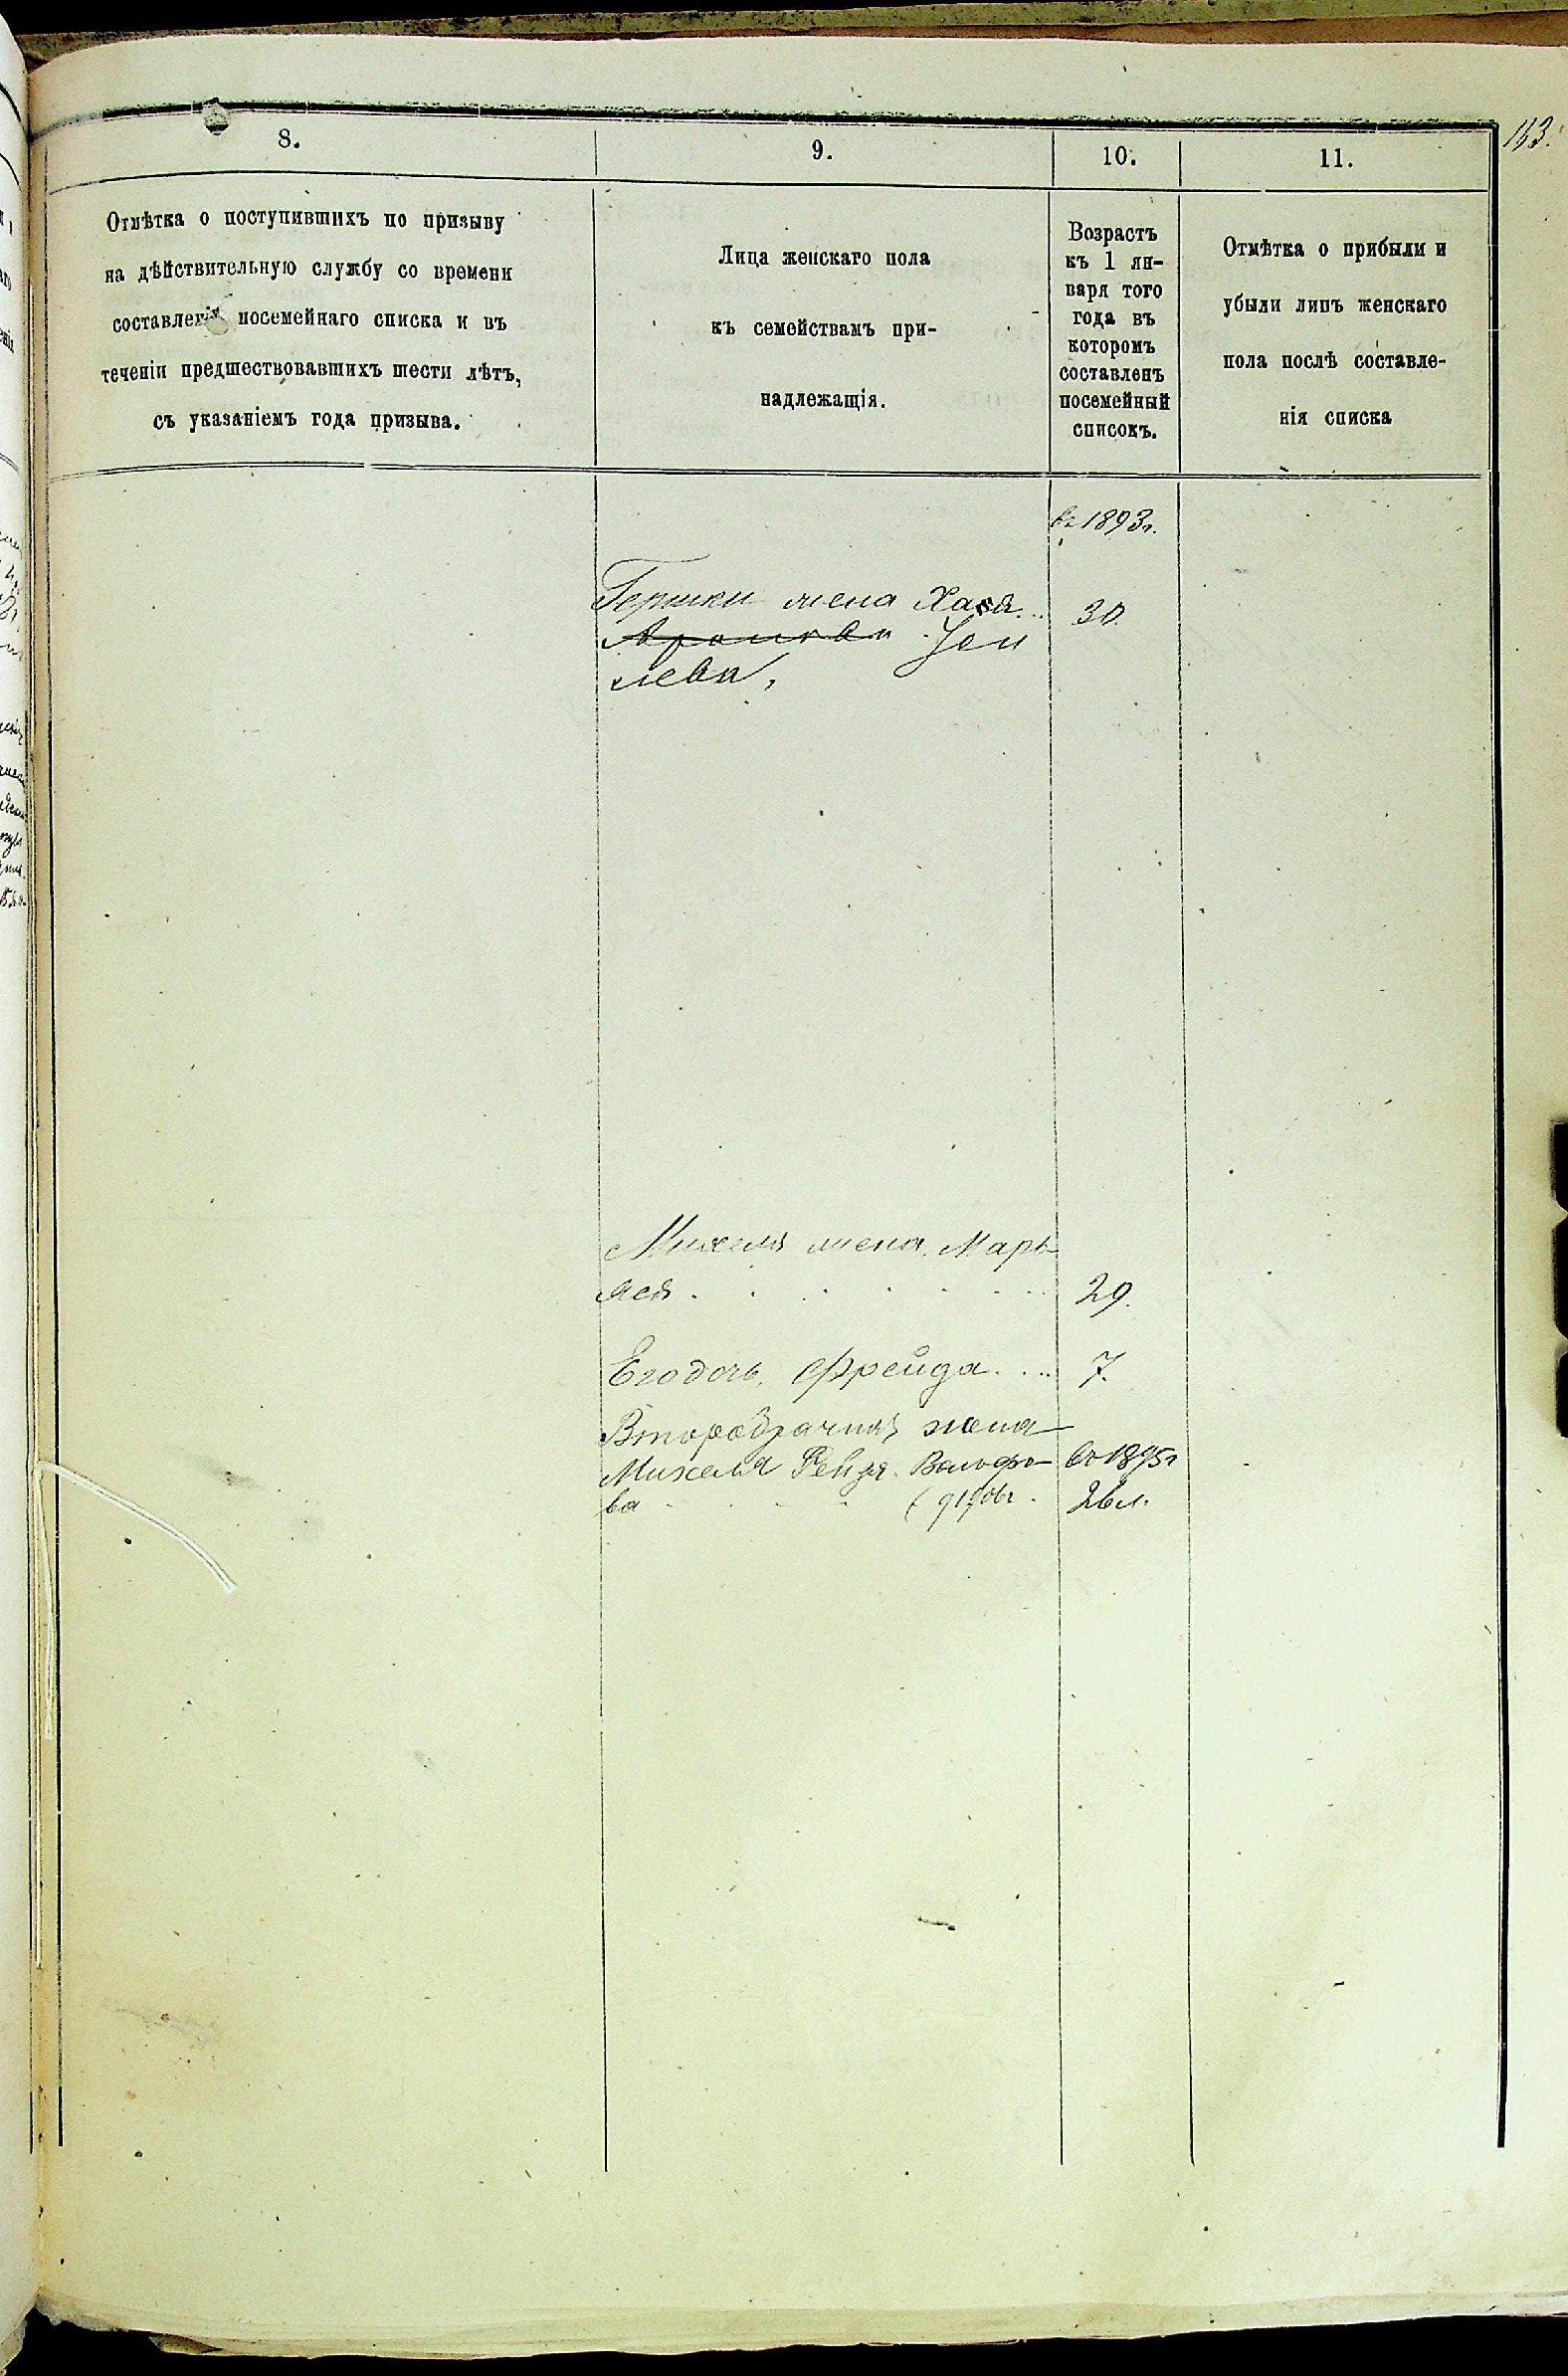 143.
8.
9.
10.
11.
Отмѣтка о поступившихъ по призыву
на дѣйствительную службу со времени
составленія посемейнаго списка и въ
теченіи предшествовавшихъ шести лѣтъ,
съ указаніемъ года призыва.
Лица женскаго пола
къ семействамъ при-
надлежащія.
Возрастъ
къ 1 ян-
варя того
года въ
которомъ
составленъ
посемейный
списокъ.
Отмѣтка о прибыли и
убыли лицъ женскаго
пола послѣ составле-
нія списка
въ 1893г.
Гершки жена Хася... 30.
Аронова
лева,
Михеля жена, Марь
яся. 29.
Его дочь, Фрейда... 7.
Второбрачная жена
Михеля Ревзя Вольфо- въ 1895г
ва 26 л.